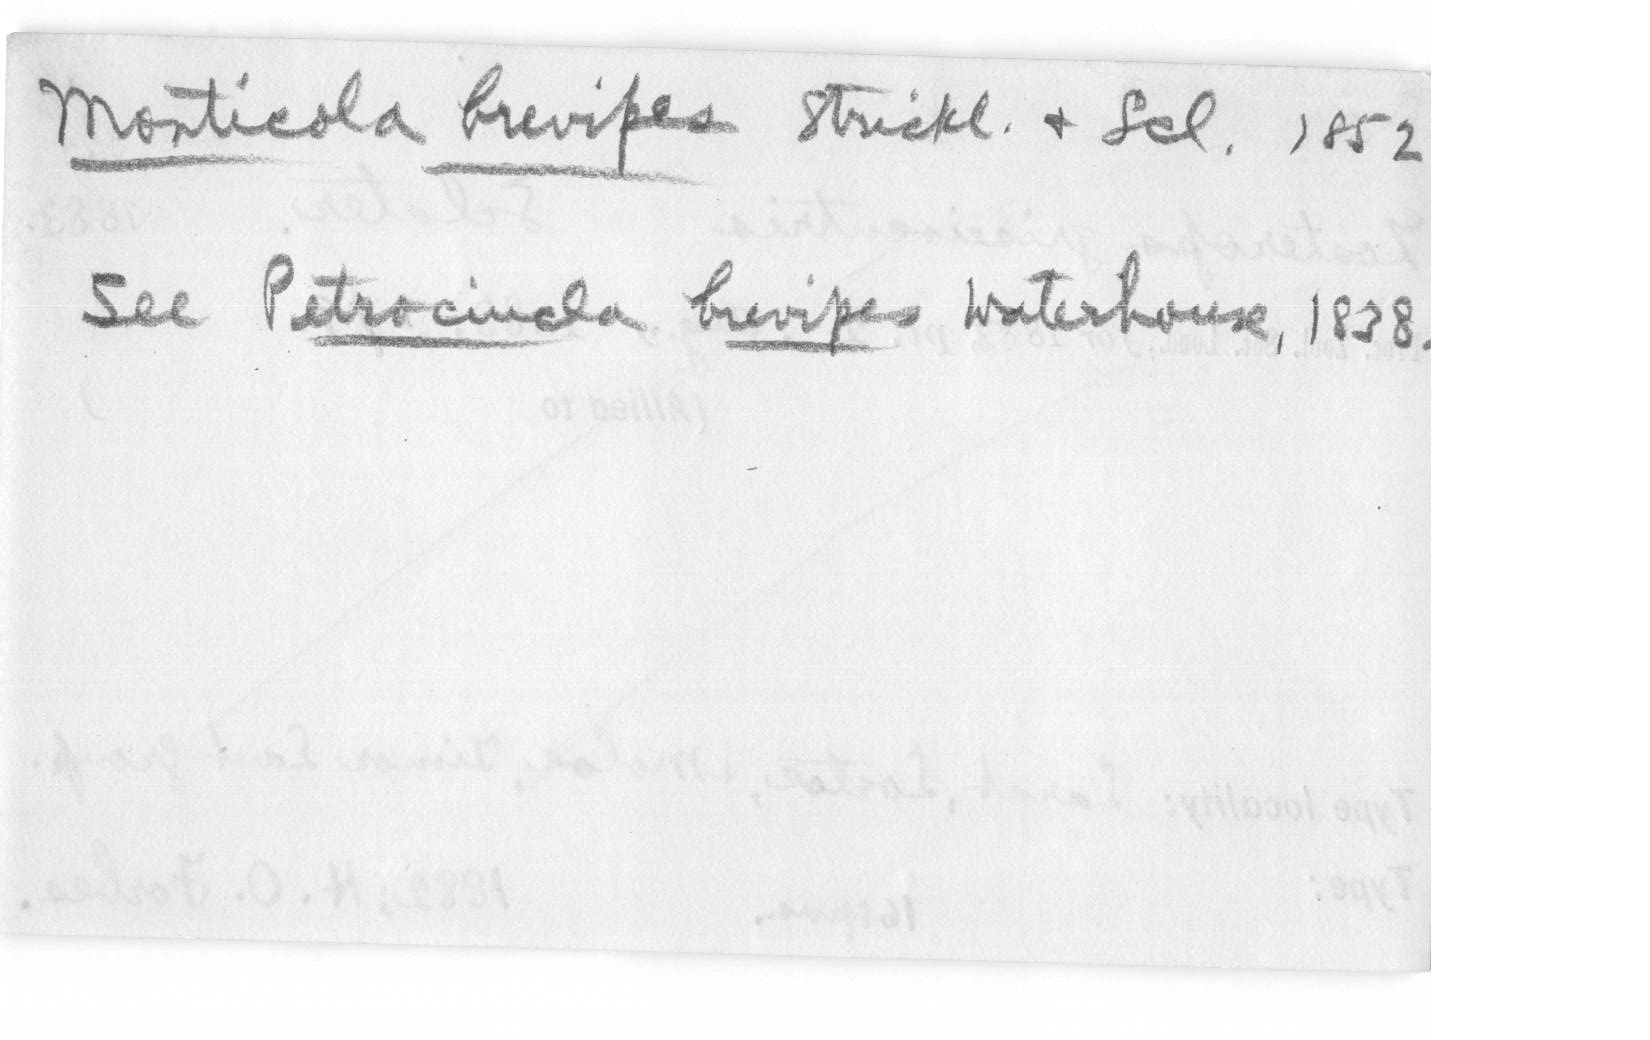 Monticola brevipes Strickl. & Scl. 1852
See Petrocincla brevipes Waterhouse, 1838.